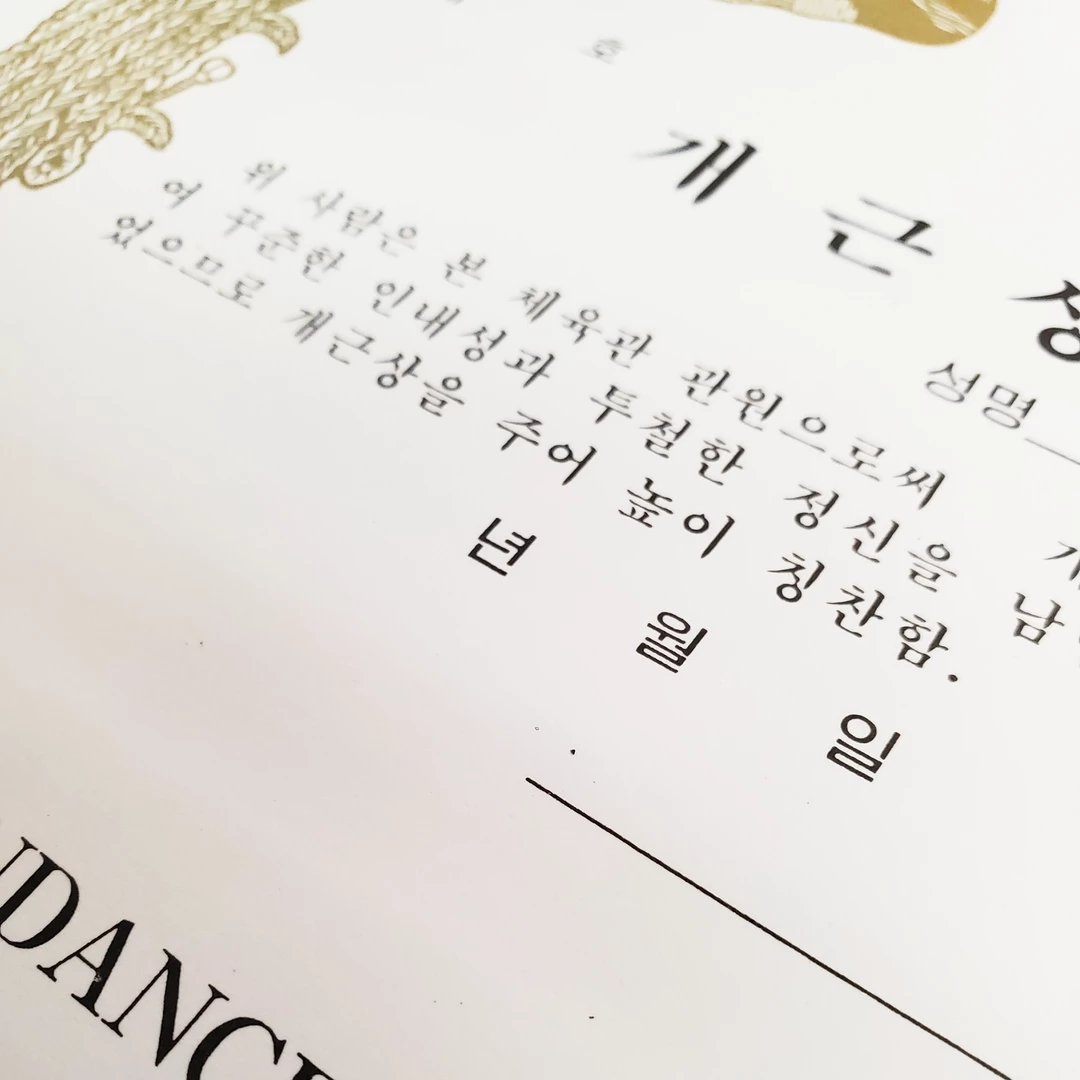 호
개 근 상
성명
위 사람은 본 체육관 관원으로써
여 꾸준한 인내성과 투철한 정신을
었으므로 개근상을 주어 높이 칭찬함.
남
년 월 일
NDANCE